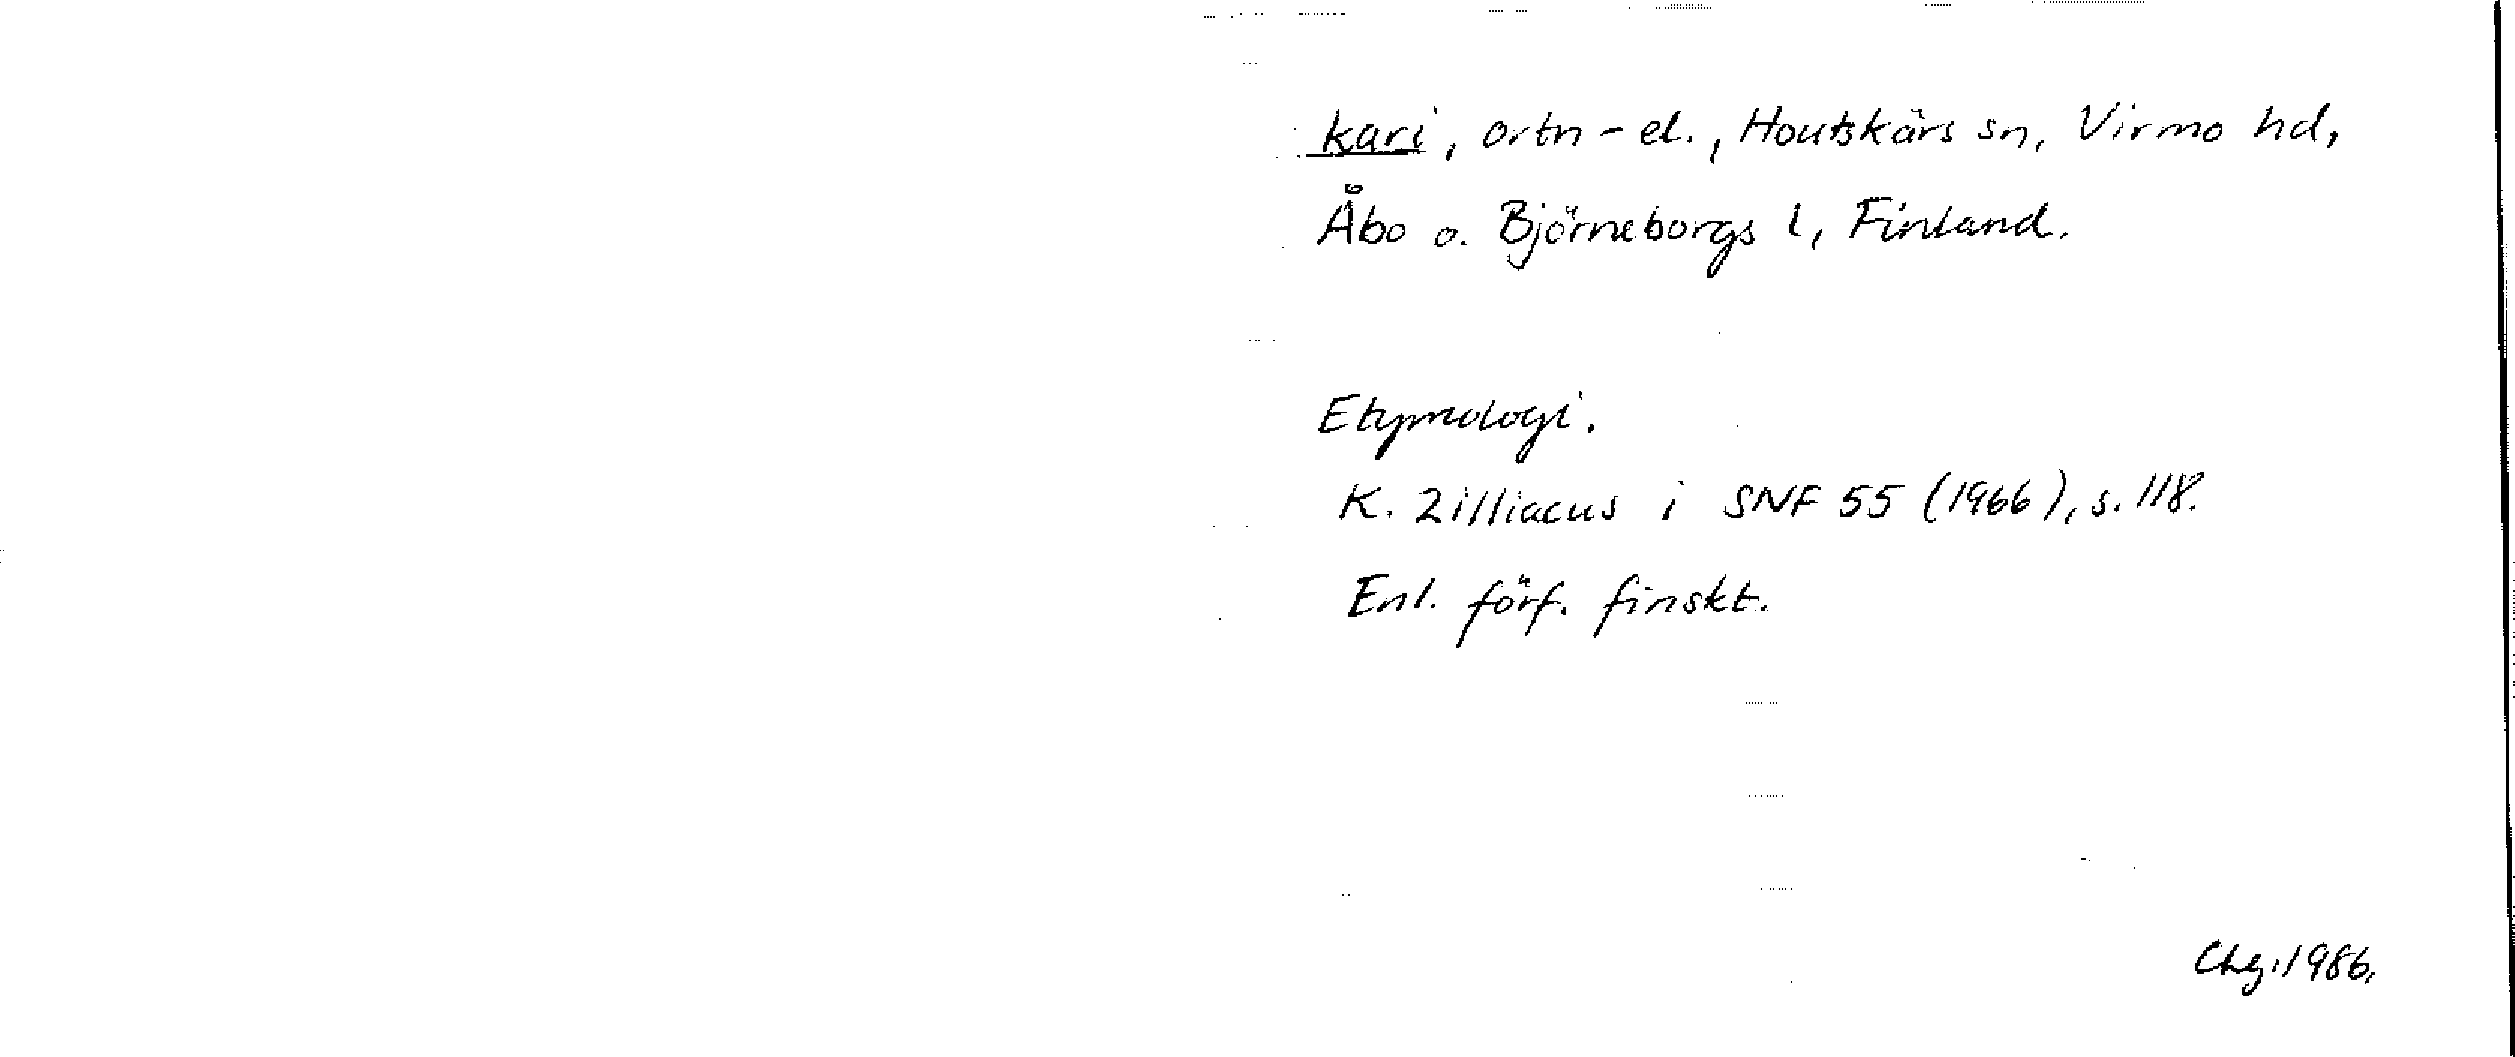 kari, ortn-el., Houtskärs sn, Virmo hd,
Åbo o. Björneborgs l, Finland.
Etymologi.
K. Zilliacus i SNF 55 (1966), s. 118.
Enl. förf. finskt.
Chg. 1986.